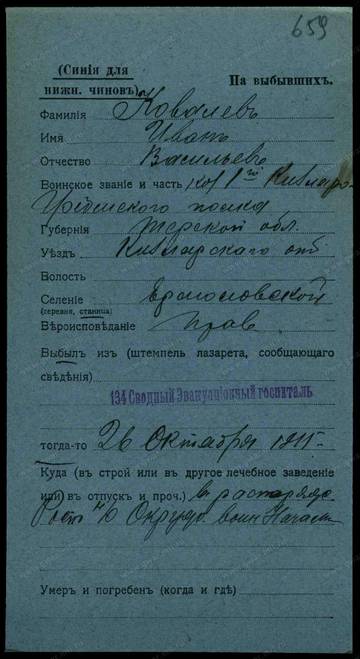 659
(Синія для
нижн. чиновъ)
На выбывшихъ.
Фамилія Ковалевъ
Имя Иванъ
Отчество Васильевъ
Воинское званіе и часть каз 1го Кизляро-
Гребенского полка
Губернія Терской обл.
Уѣздъ Кизлярскаго отд
Волость
Селеніе Ермоловской
(деревня, станица)
Вѣроисповѣданіе Прав
Выбылъ изъ (штемпель лазарета, сообщающаго
свѣдѣнія)
134 Сводный Эвакуаціонный госпиталь
тогда-то 26 Октября
Куда (въ строй или въ другое лечебное заведеніе
или въ отпускъ и проч.) въ распоряж.
Рост н/Д воин Начал
Умеръ и погребенъ (когда и гдѣ)